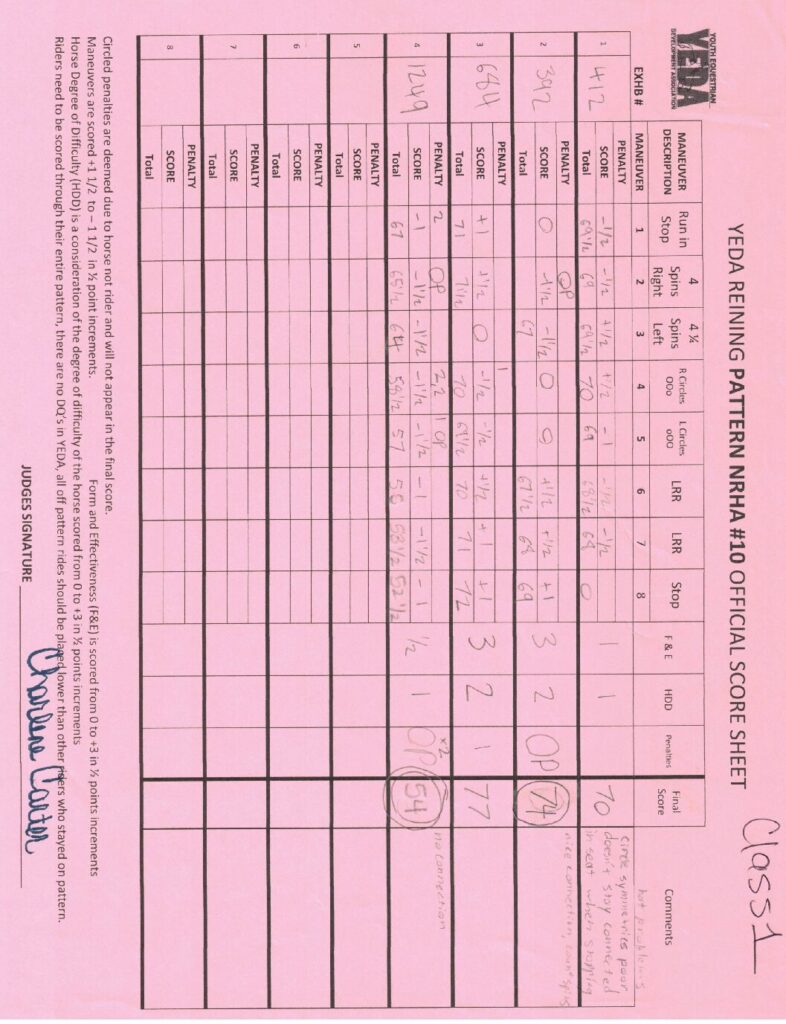 Class 1
YEDA REINING PATTERN NRHA #10 OFFICIAL SCORE SHEET
YOUTH EQUESTRIAN
YEDA
DEVELOPMENT ASSOCIATION
MANEUVER DESCRIPTION Run in Stop 4 Spins Right 4 ¼ Spins Left R Circles OOo L Circles oOO LRR LRR Stop F & E HDD Penalties Final Score Comments
EXHB # MANEUVER 1 2 3 4 5 6 7 8
1 412 PENALTY
SCORE -1/2 -1/2 +1/2 +1/2 -1 -1/2 -1/2 0 1 1 70
Total 69 1/2 69 69 1/2 70 69 68 1/2 68
circle symmetries poor
doesn't stay connected
in seat when stopping
2 392 PENALTY OP
SCORE 0 -1 1/2 -1 1/2 0 0 +1/2 +1/2 +1 3 2 OP 74
Total 67 67 1/2 68 69
nice connection, count spins
3 684 PENALTY 1
SCORE +1 +1/2 0 -1/2 -1/2 +1/2 +1 +1 3 2 1 77
Total 71 71 1/2 70 69 1/2 70 71 72
4 1249 PENALTY 2 OP 2,2 1 OP
SCORE -1 -1 1/2 -1 1/2 -1 1/2 -1 1/2 -1 -1 1/2 -1 1/2 1 OP x2 54
Total 67 65 1/2 64 58 1/2 57 53 1/2 52 1/2
no connection
5 PENALTY
SCORE
Total
6 PENALTY
SCORE
Total
7 PENALTY
SCORE
Total
8 PENALTY
SCORE
Total
Circled penalties are deemed due to horse not rider and will not appear in the final score.
Maneuvers are scored +1 1/2 to – 1 1/2 in ½ point increments. Form and Effectiveness (F&E) is scored from 0 to +3 in ½ points increments
Horse Degree of Difficulty (HDD) is a consideration of the degree of difficulty of the horse scored from 0 to +3 in ½ points increments
Riders need to be scored through their entire pattern, there are no DQ's in YEDA, all off pattern rides should be placed lower than other riders who stayed on pattern.
JUDGES SIGNATURE Charlene Carter